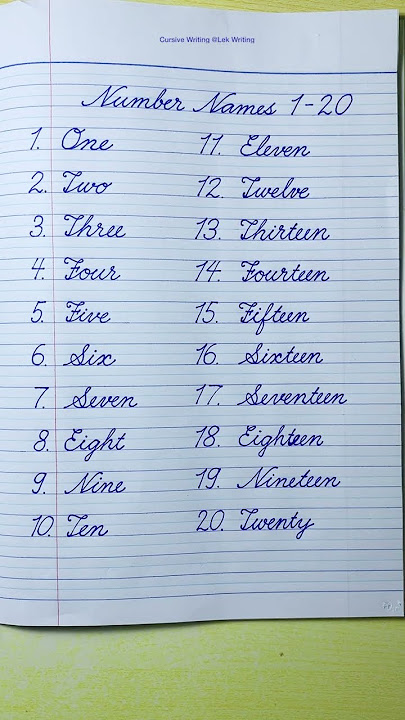 Cursive Writing @Lek Writing
Number Names 1-20
1. One
2. Two
3. Three
4. Four
5. Five
6. Six
7. Seven
8. Eight
9. Nine
10. Ten
11. Eleven
12. Twelve
13. Thirteen
14. Fourteen
15. Fifteen
16. Sixteen
17. Seventeen
18. Eighteen
19. Nineteen
20. Twenty